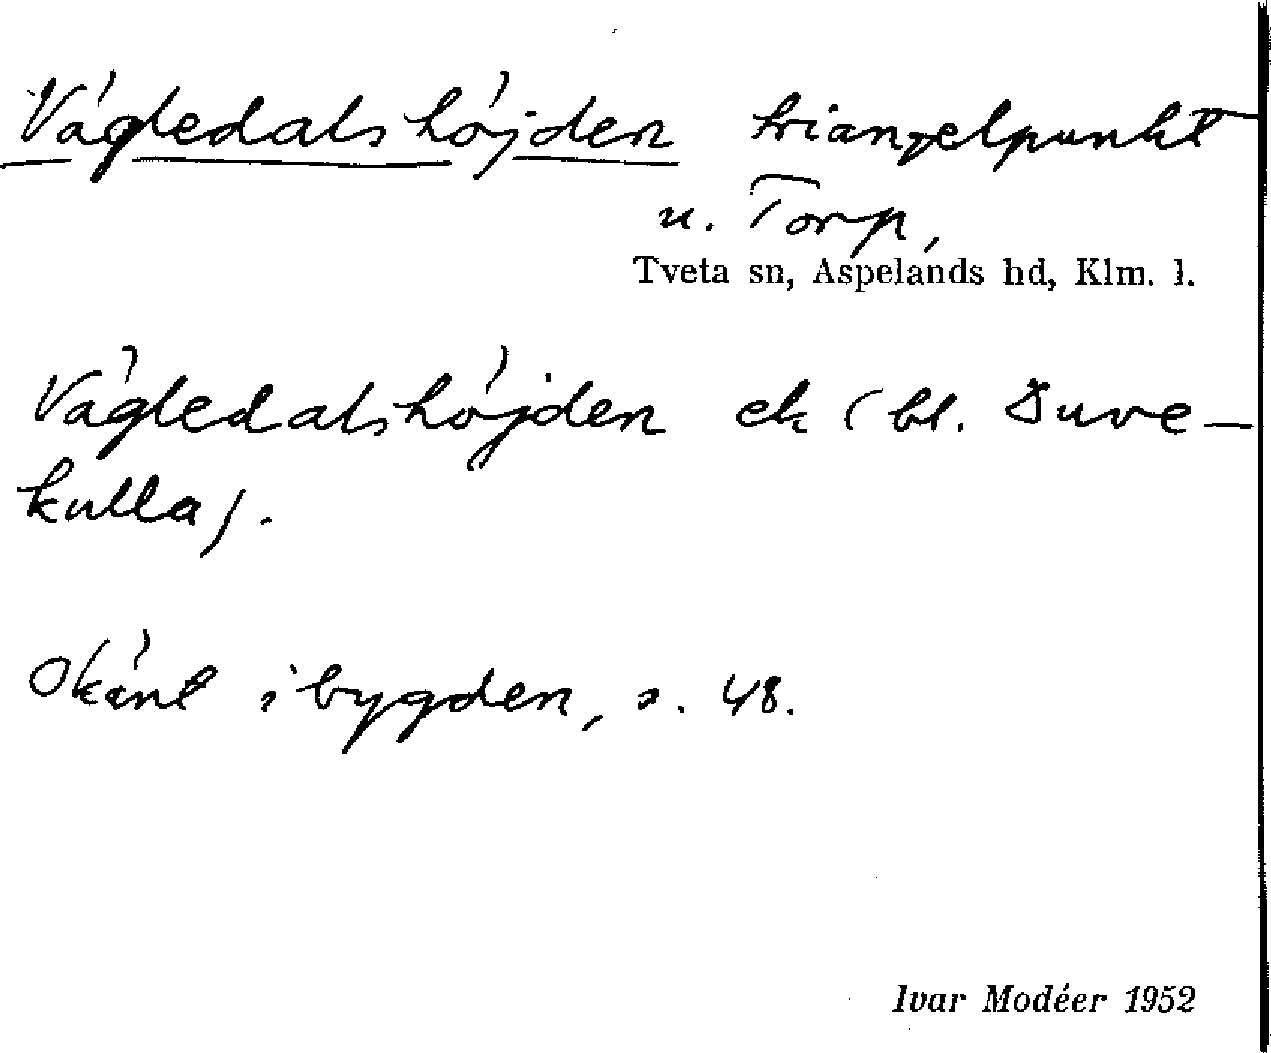 Vägledalshöjden triangelpunkt
u. Torp,
Tveta sn, Aspelands hd, Klm. l.
Vägledalshöjden ek (bl. Duve-
kulla).
Okänt i bygden, s. 48.
Ivar Modéer 1952